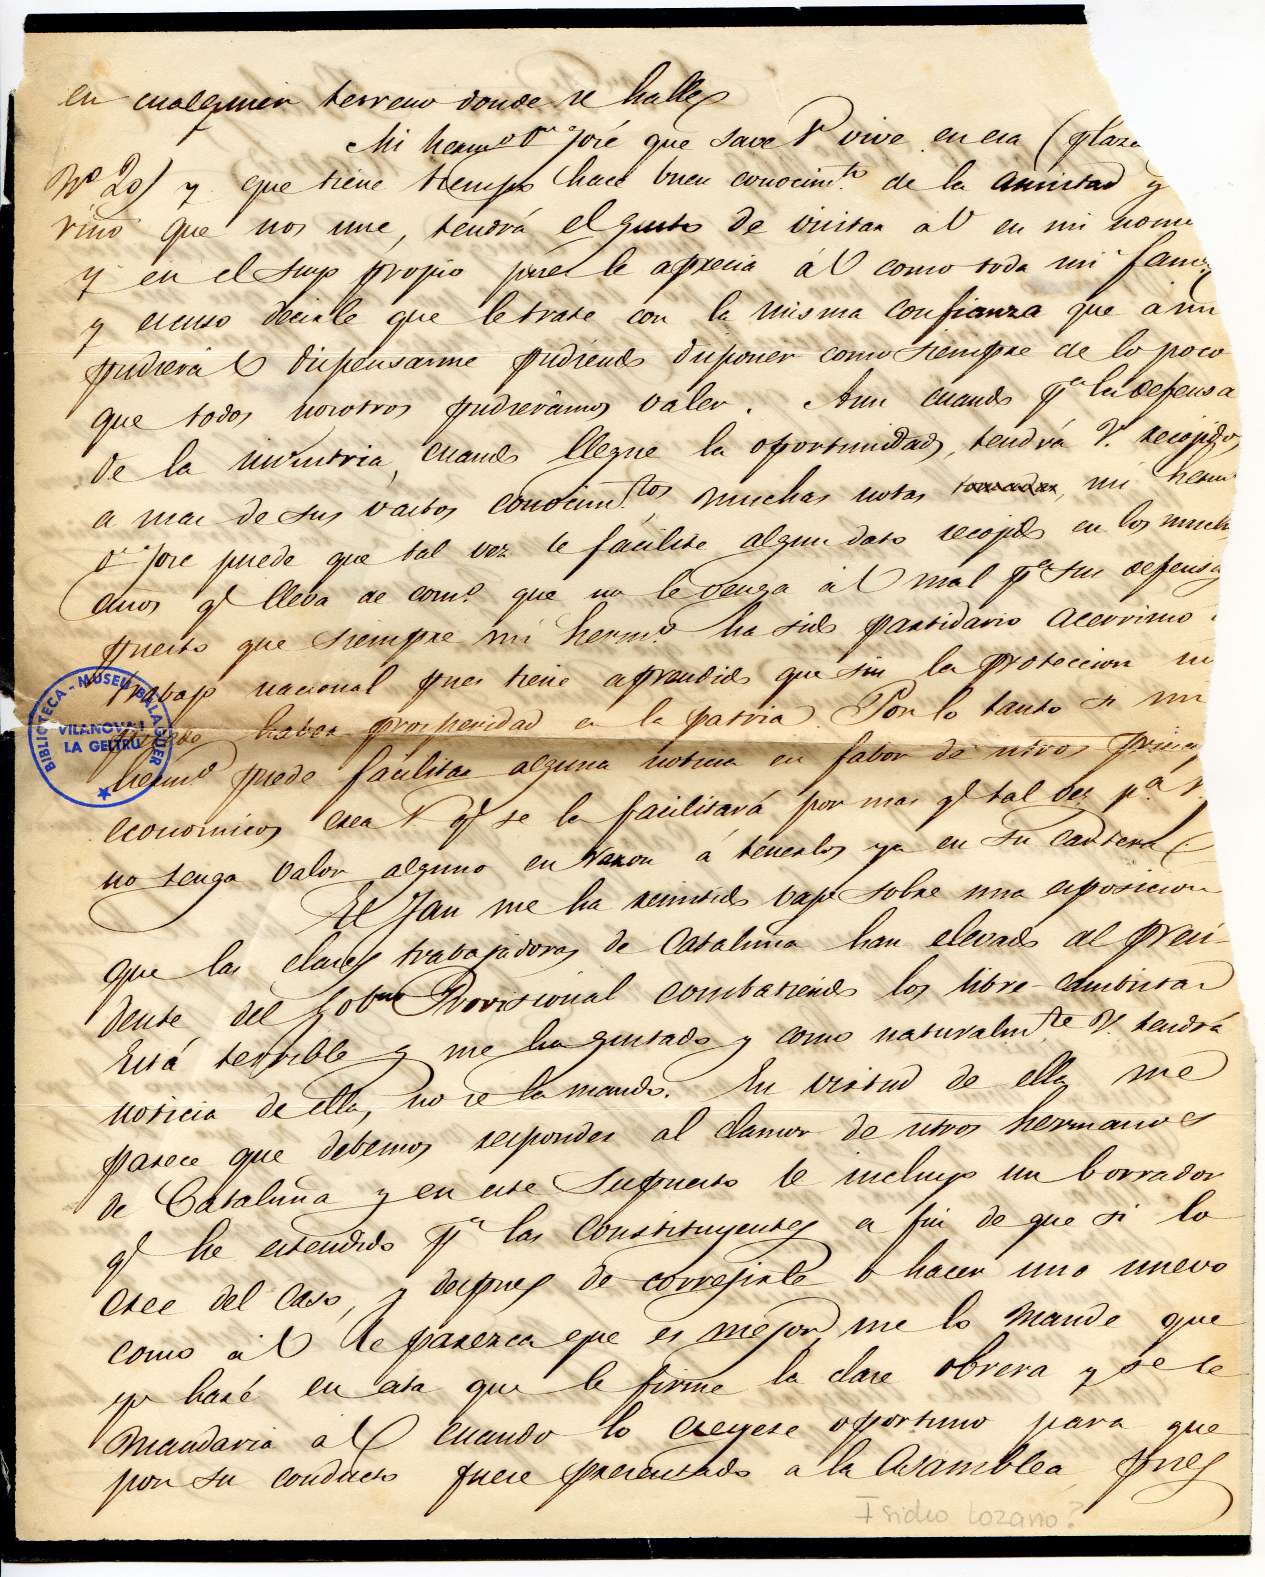 en cualquier terreno donde se halle
Mi hermº Dn José que save V vive en esa (plaza
Nº 20) y que tiene tiempo hace buen conocimto de la amistad y
riño que nos une, tendrá el gusto de visitar a V en mi nom
y en el suyo propio pues le aprecia á V como toda mi fam
y escuso decirle que le trate con la misma confianza que á mi
pudiera V dispensarme pudiendo disponer como siempre de lo poco
que todos nosotros pudieramos valer. Aun cuando pª la defensa
de la industria, cuando llegue la oportunidad, tendrá V. recojidos
a mas de sus vastos conocimtos muchas notas tomadas, mi herm
Dn Jose puede que tal vez le facilite algun dato recojido en los much
años q lleva de comº que no le venga á V mal pª sus defensas
puesto que siempre mi hermº ha sido partidario acerrimo
trabajo nacional pues tiene aprendido que sin la proteccion no
puede haber prosperidad en la patria. Por lo tanto si mi
hermº puede facilitar alguna noticia en fabor de ntros princ
economicos crea V. q se la facilitará por mas q tal vez pª V.
no tenga valor alguno en razon á tenerlos ya en su cartera.
El Jan me ha remitido bajo sobre una esposicion
que las clases trabajadoras de Cataluña han elevado al presi-
dente del Gobno Provisional combatiendo los libre-cambistas
Está terrible y me ha gustado y como naturalmte V. tendrá
noticia de ella, no se la mando. En virtud de ella me
parece que debemos responder al clamor de ntros hermanos
de Cataluña y en este supuesto le incluyo un borrador
q he estendido pª las Constituyentes a fin de que si lo
cree del caso, y despues de correjirle o hacer uno nuevo
como á V le parezca que es mejor, me lo mande que
yo haré en esta que le firme la clase obrera y se le
mandaria a V cuando lo creyese oportuno para que
por su conducto fuese presentado a la Asamblea, pues
Isidro Lozano?
BIBLIOTECA - MUSEU BALAGUER
VILANOVA I
LA GELTRÚ